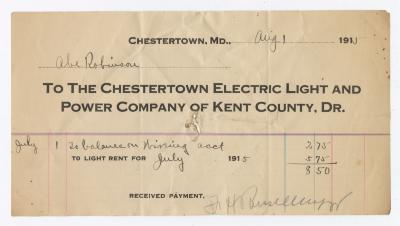 CHESTERTOWN, MD., Aug 1 1915
Abe Robinson
TO THE CHESTERTOWN ELECTRIC LIGHT AND
POWER COMPANY OF KENT COUNTY, DR.
July 1 To balance on Wiring acct 2 75
TO LIGHT RENT FOR July 1915 5 75
8 50
RECEIVED PAYMENT,